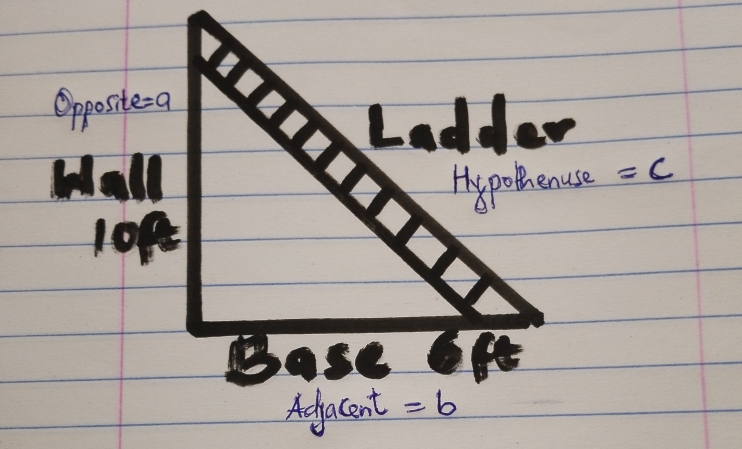 Opposite=a
Wall
10ft
Ladder
Hypothenuse = c
Base 6ft
Adjacent = b